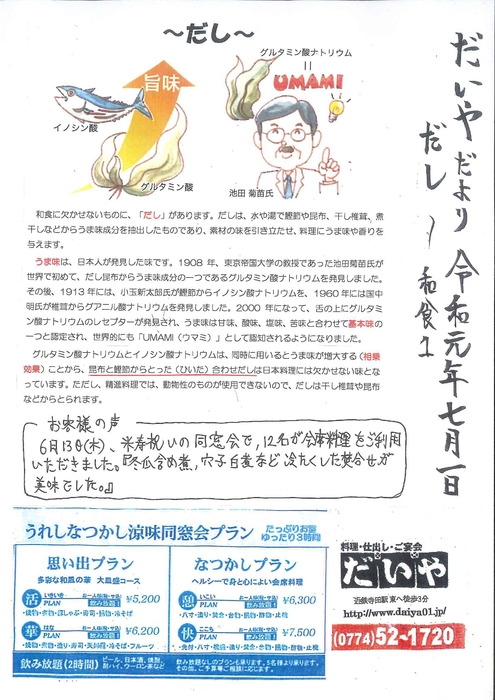 だいやだより 令和元年七月一日
だし 〜 和食1
〜だし〜
グルタミン酸ナトリウム
=
UMAMI
旨味
イノシン酸
グルタミン酸
池田 菊苗氏
和食に欠かせないものに、「だし」があります。だしは、水や湯で鰹節や昆布、干し椎茸、煮
干しなどからうま味成分を抽出したものであり、素材の味を引き立たせ、料理にうま味や香りを
与えます。
うま味は、日本人が発見した味です。1908 年、東京帝国大学の教授であった池田菊苗氏が
世界で初めて、だし昆布からうま味成分の一つであるグルタミン酸ナトリウムを発見しました。
その後、1913 年には、小玉新太郎氏が鰹節からイノシン酸ナトリウムを、1960 年には国中
明氏が椎茸からグアニル酸ナトリウムを発見しました。2000 年になって、舌の上にグルタミ
ン酸ナトリウムのレセプターが発見され、うま味は甘味、酸味、塩味、苦味と合わせて基本味の
一つと認定され、世界的にも「UMAMI(ウマミ)」として認知されるようになりました。
グルタミン酸ナトリウムとイノシン酸ナトリウムは、同時に用いるとうま味が増大する(相乗
効果)ことから、昆布と鰹節からとった(ひいた)合わせだしは日本料理には欠かせない味とな
っています。ただし、精進料理では、動物性のものが使用できないので、だしは干し椎茸や昆布
などからとられます。
お客様の声
6月13日(木)、米寿祝いの同窓会で、12名が会席料理をご利用
いただきました。『冬瓜含め煮、穴子白煮など冷たくした焚合せが
美味でした。』
うれしなつかし涼味同窓会プラン たっぷりお話 ゆったり3時間
思い出プラン
多彩な和風の華 大皿盛コース
活 いきいき PLAN 飲み放題! ¥5,200
華 はな PLAN 飲み放題! ¥6,200
飲み放題(2時間)
なつかしプラン
ヘルシーで身と心によい会席料理
憩 いこい PLAN 飲み放題! ¥6,300
快 こころ PLAN 飲み放題! ¥7,500
飲み放題なしのプランも承ります。5名様より承ります。
その他、ご予算等ご相談に応じます。
料理・仕出し・ご宴会
だいや
近鉄寺田駅 東へ徒歩3分
http://www.daiya01.jp/
(0774)52-1720